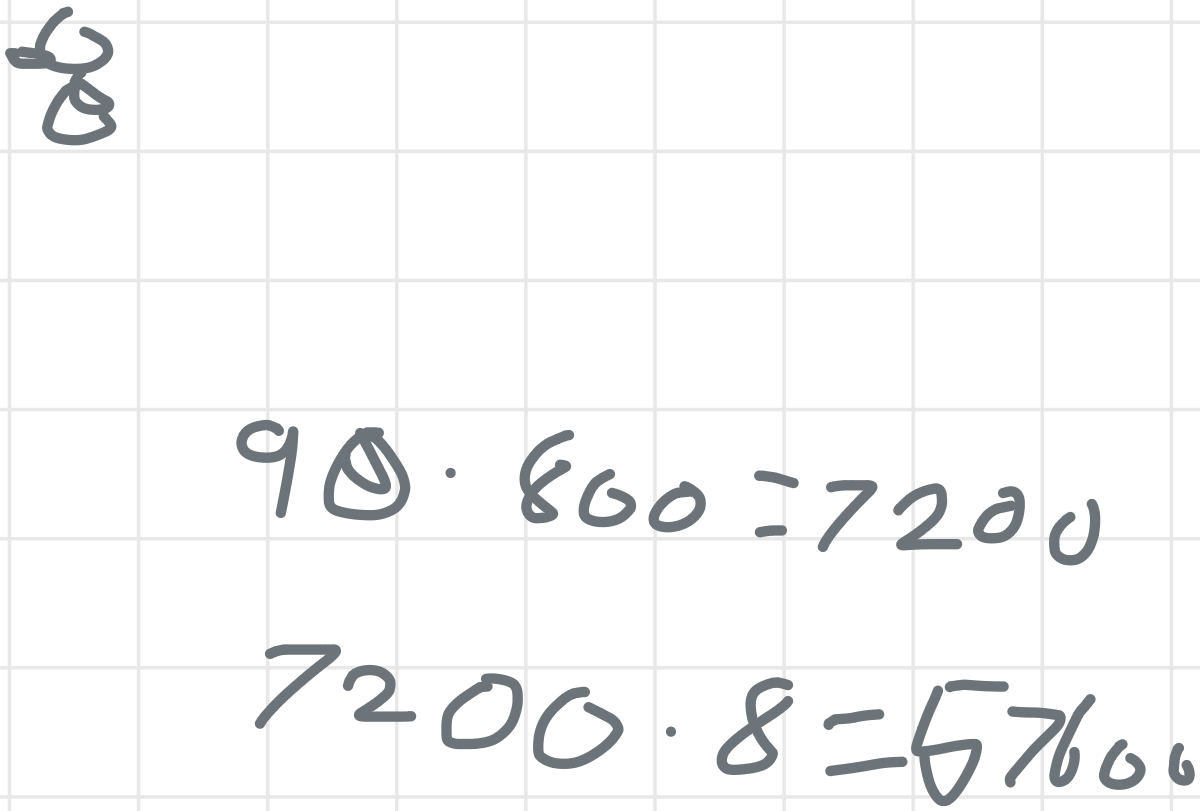 8
90 · 800 = 7200
7200 · 8 = 57600